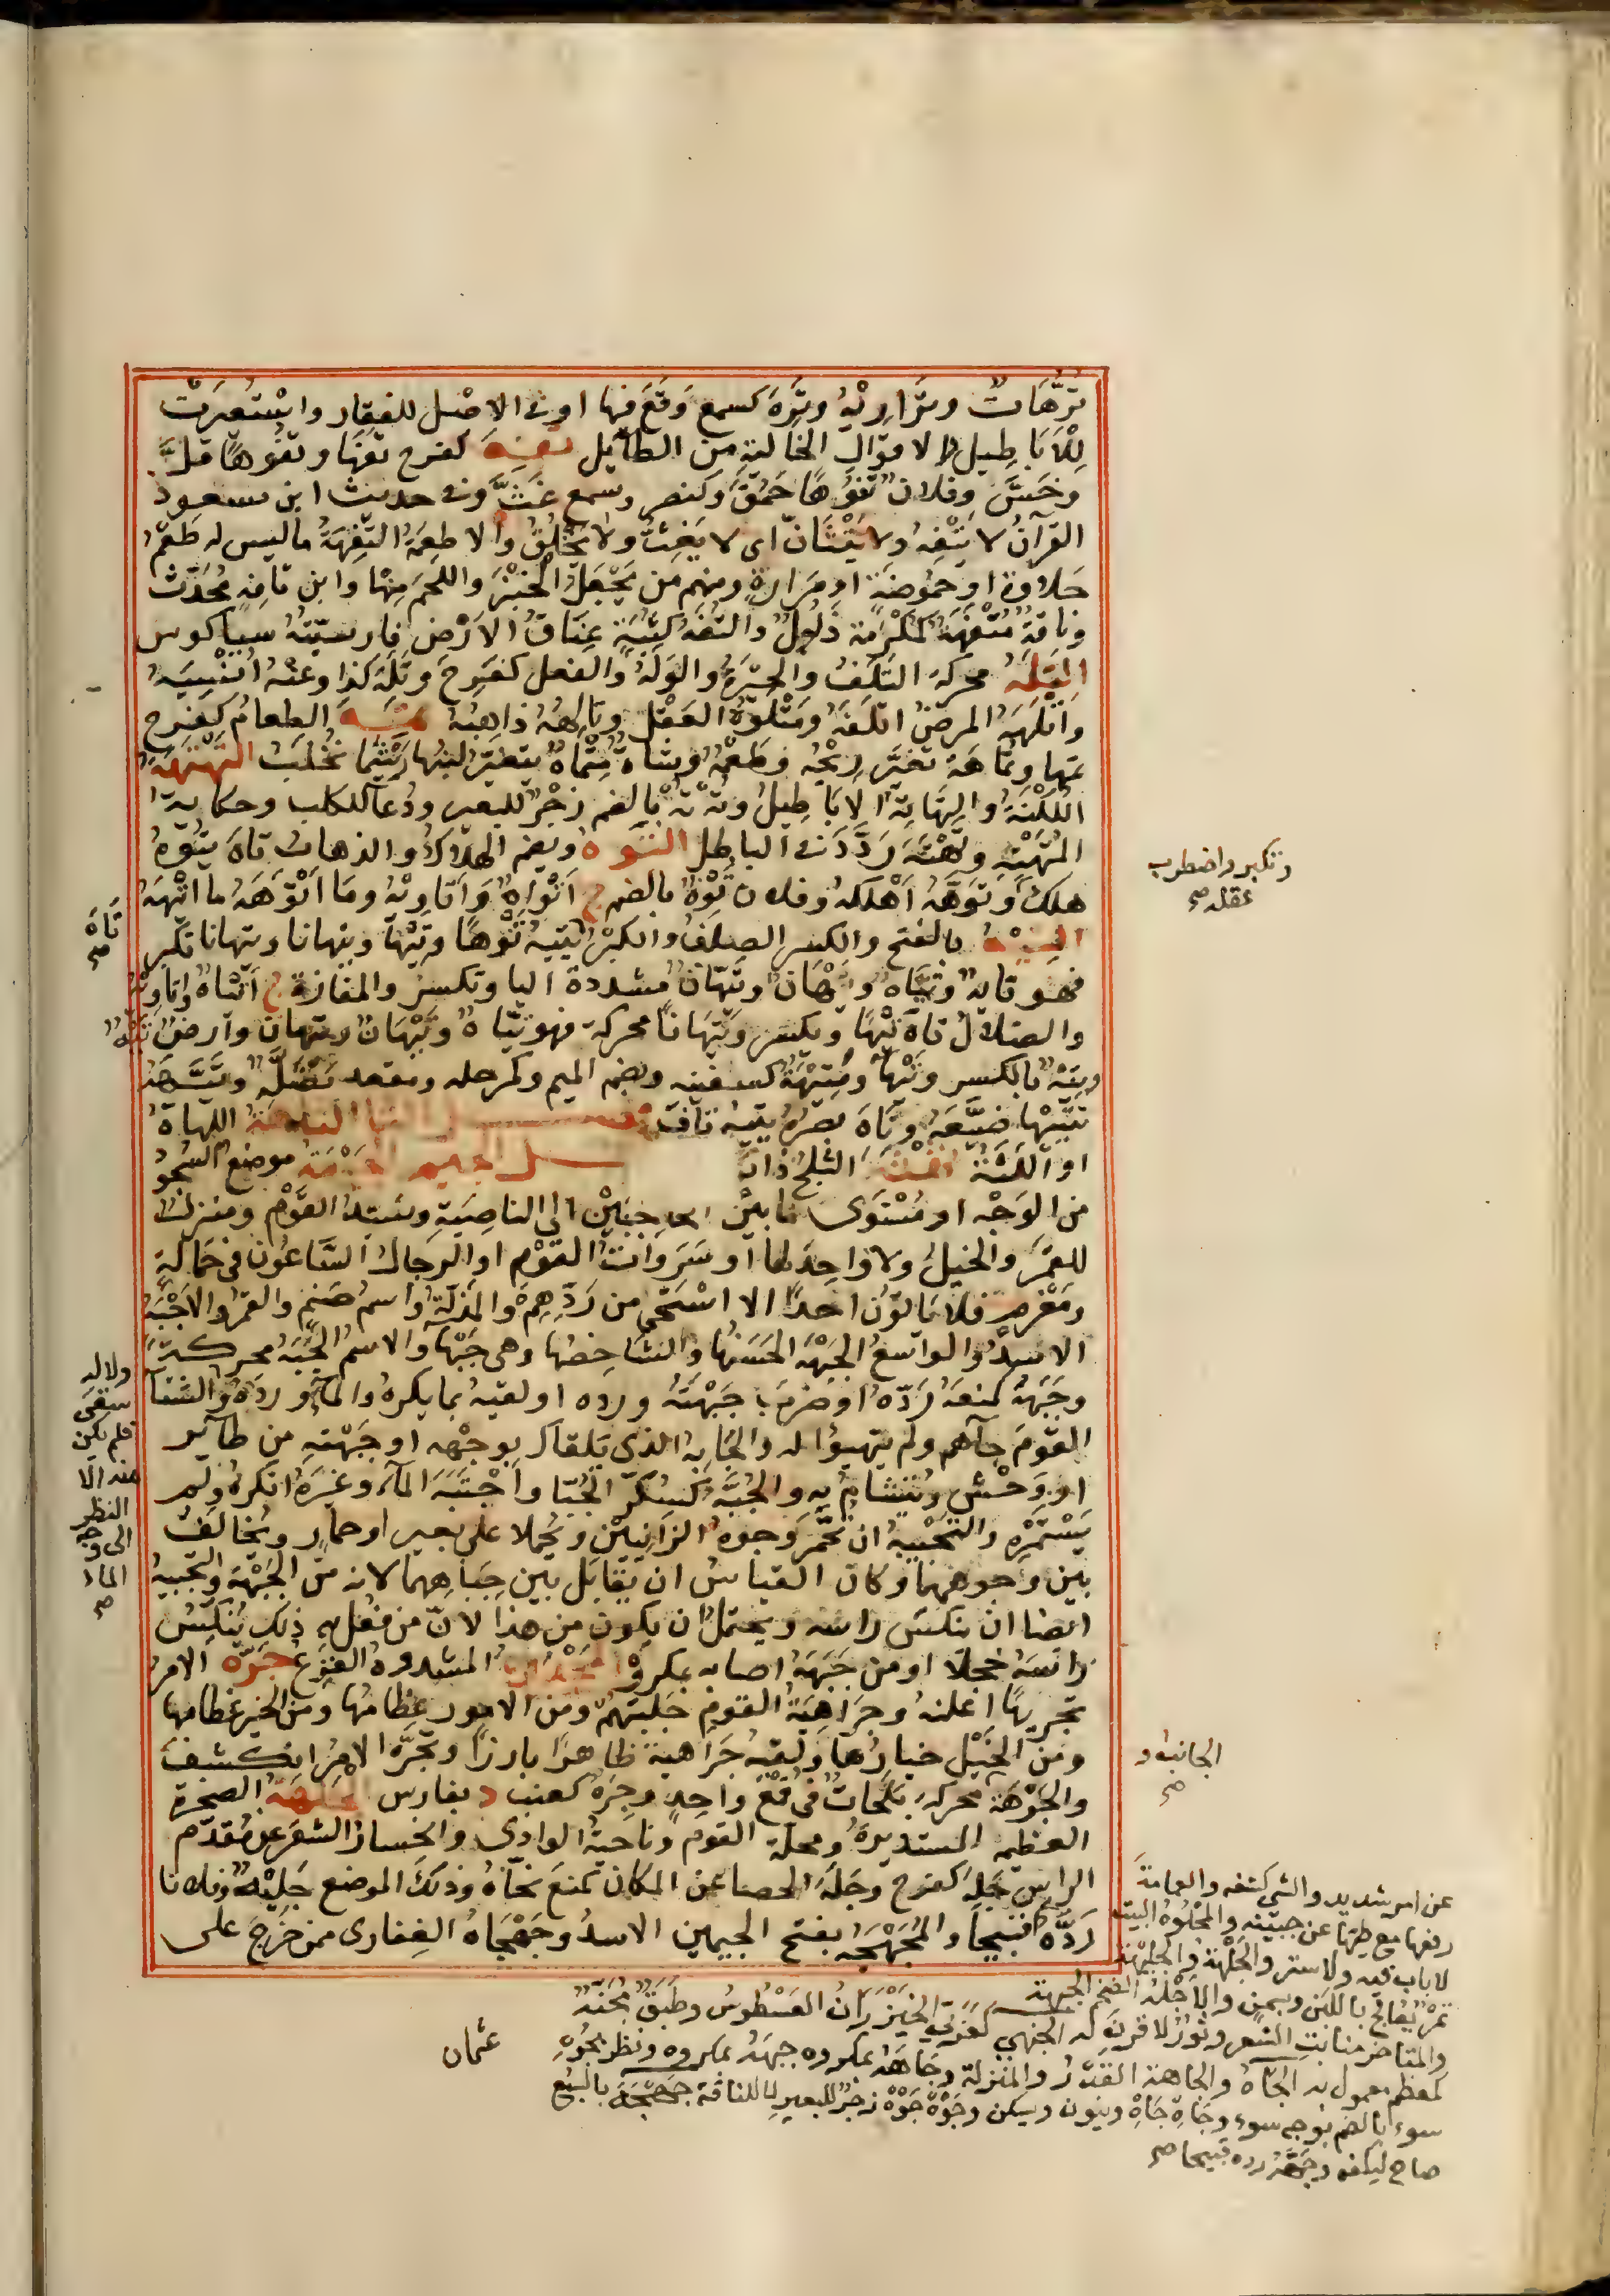 تُرَّهَاتٌ وتَرَاريْهُ وتَرِهَ كسمع وَقَعَ فيها او فى الاصْل للقِفَار واسْتُعِيرَتْ
لِلْاَبَاطِيل والاقوَالِ الخَاليةِ من الطَائِل تفه كفرح تَفَهًا وتفُوهًا قلَّ
وخَسَّ وفلان تفُوهًا حَمُقَ وكنصر وسمع غَثَّ وفى حديث ابن مسعود
القرآنُ لا يَتْفَهُ ولا يَتَشَانُّ اى لا يَغِثُّ ولا يَخْلُقُ والاطعِمَةُ التَفِهَةُ ما ليس له طَعمُ
حَلاوةٍ او حمُوضةٍ او مَرَارةٍ ومنهم من يَجْعَلُ الخُبْزَ واللحمَ مِنْها وابن تَافِهٍ مُحَدِّثٌ
وناقةٌ مُتْفَهَةٌ كمُكْرمة ذَلُولٌ والتُفَةُ كثُبَةٍ عَنَاقُ الارْضِ فارسيّتهُ سياكوس
التَلَهُ محركة التَلَفُ والحَيْرَةُ والوَلَهُ والفعل كفَرِحَ وتَلِهَ كذا وعنْهُ اُنْسِيَهُ
واَتْلَهَهُ المرضُ اتْلَفَهُ ومَتْلُوهُ العَقْل وتَالِهُهُ ذاهِبُهُ تمه الطعامُ كفَرِحَ
تمَها وتَمَاهَةً تغيَّر رِيْحُه وطَعْمُهُ وشَاةٌ مِتْمَاهٌ يتغيّر لبنُها رَيْثَما تُحْلَبُ التَهْتَهَةُ
اللُكْنَةُ والتَهَاتِهُ الابَاطِيلُ وتُهْ تُهْ بالضم زجْرٌ للبعير ودُعآ للكلب وحكايةُ
المُتَهْتِهِ وتَهْتَهَ رَدَّدَ فى الباطِل التَوهُ ويضم الهلاكُ والذهابُ تاهَ يتُوهُ
هلك وتَوَّهَهُ اَهْلكه وفلان تُوْهٌ بالضم ج اَتْواهٌ واَتَاوِيْهُ وما اَتْوَهَهُ ما اَتْيَهَهُ
التِيْهُ بالفتح والكسر الصَلَفُ والكِبْرُ يَتِيْهُ تَوْهًا وتِيْهًا وتيهانا وتيهانا تكبر
فهو تَايِهٌ وتَيَّاهٌ وتَيْهَانُ وتَيِّهَانٌ مشددة اليا وتكسر والمفازة ج اَتْيَاهٌ واَتَاوِيْهُ
والضلالُ تاهَ تَيْهًا ويكسر وتَيَهَانًا محركة فهو تَيَّاهٌ وتَيْهَانٌ وتيهان وارضٌ تِيْهٌ
وتِيهٌ بالكسر وتَيْها ومَتِيْهَةٌ كسفينه وبضم الميم وكمرحله ومقعد مَضَلَّةٌ وتَيَّهَهُ
تَتْيِيْها ضَيَّعَهُ وتَاهَ بصَرُهُ يَتِيْهُ تَافَ فصل الثا الثاهَةُ اللهاةُ
او اللِثَةُ الثلجُ ذابَ فصل الجيم الجَبْهَة موضع السُجُودِ
من الوَجْه او مُسْتَوَى ما بين الحاجِبَيْنِ الى الناصِيَةِ وسَيّدُ القَوْمِ ومنزلٌ
للقَمَرِ والخيلُ ولا واحِدَ لها او سَرَوَاتُ القَوْمِ او الرجالُ السَّاعُون فى حَمَالةٍ
ومَغْرمٍ فلا يَاتُوْنَ احدًا الا اسْتَحْى من رَدِّهِمْ والمَذَلّةُ واسم صَنَمٍ والقمرُ والاَجْبَهُ
الاسدُ والواسعُ الجَبْهَةِ الحَسَنُها والشاخِصُها وهى جَبْها والاسمُ الجَبَهُ محركةً
وجَبَهَهُ كمَنَعَهُ رَدّه او ضرَبَ جَبْهَتَهُ ورده او لقيهُ بما يكرهُ والمآ ورَدَهُ والشتا
القومَ جآهم ولم يتهيؤا له والجَابِهُ الذى يَلقاك بوجْهه او جَبْهَتِه من طآير
او وَحْشٍ ويُتشاءمُ به والجُبَّهُ كسُكَّر الجُبّا واجْتَبَهَ المآ وغيرَهُ انكره ولم
يَسْتَمْرِه والتَجْبِيهُ ان تُحَمَّر وجوهُ الزانِيَيْنِ ويُحملا على بعير او حمارٍ ويُخالف
بين وجوههما وكان القياسُ ان يُقَابَل بين جِبَاهِهما لانه من الجَبْهَةِ والتجبيهُ
ايضا ان يُنكس راسُه ويحتملُ ان يكون من هذا لانّ من فُعل به ذلك يُنَكّس
رَاسَهُ خجلًا او من جَبَهَهُ اصابه بمكروه المشدوه الفَزَعُ جَرَّه الامرَ
تجريهًا اعْلنهُ وجَرَاهِيَةُ القوم جَلَبَتهُمْ ومن الامور عِظامُها ومن الخير عظامها
ومن الخَيْل خيارُها ولقيه جَراهيةً ظاهرًا بارزًا وتجَرَّه الامرُ انكشف
والجَرَهَة محركة بَلَحَاتٌ فى قَمْعٍ واحِدٍ وجِرَهُ كعنب د بفارس الجَلْهَة الصخرة
العظيمة المستديرة ومحلة القوم وناحيةُ الوادى وانحِسارُ الشعر عن مُقدّم
الراسِ جَلِهَ كفرح وجَلَهَ الحصا عن المكان كمنع نحّاهُ وذلكَ الموضع جَلِيْهَةٌ وفلانا
رَدَّه قبيحا والمُجَهْجَه بفتح الجيمين الاسدُ وجَهْجَاهُ الغِفارى ممن خَرَجَ على
وتكبر واضطرب
عقله صح
تَاهَ
صح
ولا له
سَقى
فلم يكن
منه الا
النظر
الى وجه
الماء
صح
الجانبُ و
صح
عن امر شديد والشى كشفه والعمامَةَ
رفعها مع طَيّها عن جبينه والمَجْلُوهُ البيت
لا باب فيه ولا ستر والجَلْهَةُ والجليهة
تمْرٌ يُعَالج باللبَن ويسمن والاَجْلهُ الضخم الجبهة
والمتاخر منابت الشعر وثَوْرٌ لا قرن له الجنهى كعُرَنىٍّ الخَيْزُرَانُ العَسْطُوس وطَبَقٌ مُجَنَّهٌ
كمعظم معمول به الجَاهُ والجاهة القَدْرُ والمنزلة وجَاهَهُ بمكروه جبهَهُ بمكروه ونظر بجُوْهِ
سوء بالضم بوجه سوء وجَاهِ جَاهِ وينون ويسكن وجَوْهْ جَوْهْ زجرٌ للبعير لا للناقة جَهْجَهَ بالسَبُع
صاح ليكف وجَهَّهُ رده قبيحا صح
عثمان